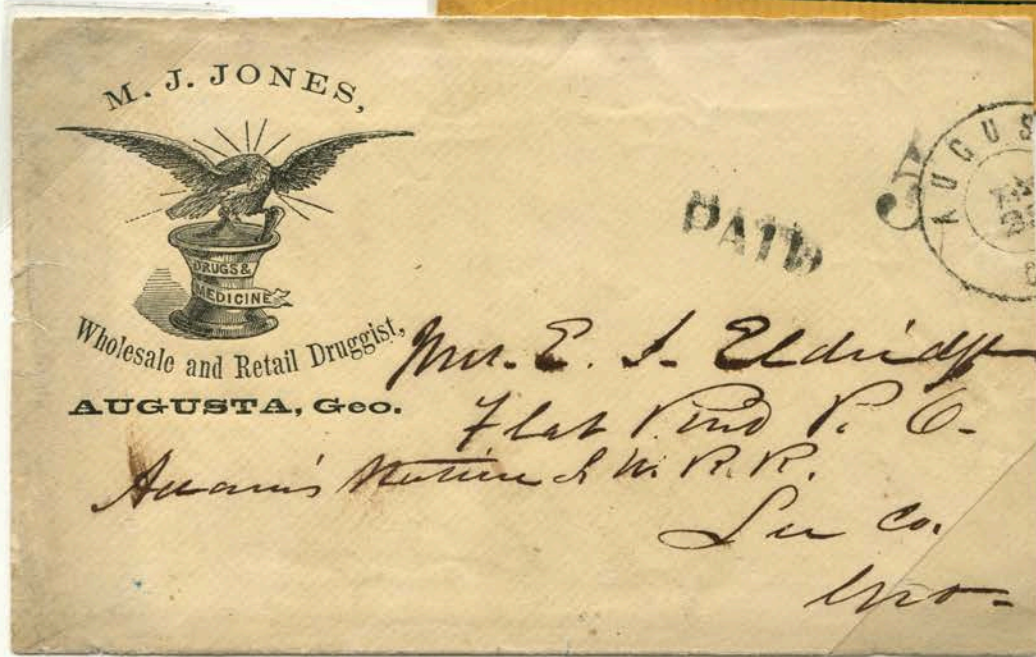 M. J. JONES,
DRUGS &
MEDICINE
Wholesale and Retail Druggist,
AUGUSTA, Geo.
PAID
5
AUGUS
Mrs. E. S. Eldridge
Flat Pond P. O.
Adams Station S W. R. R.
Lee Co.
Geo-